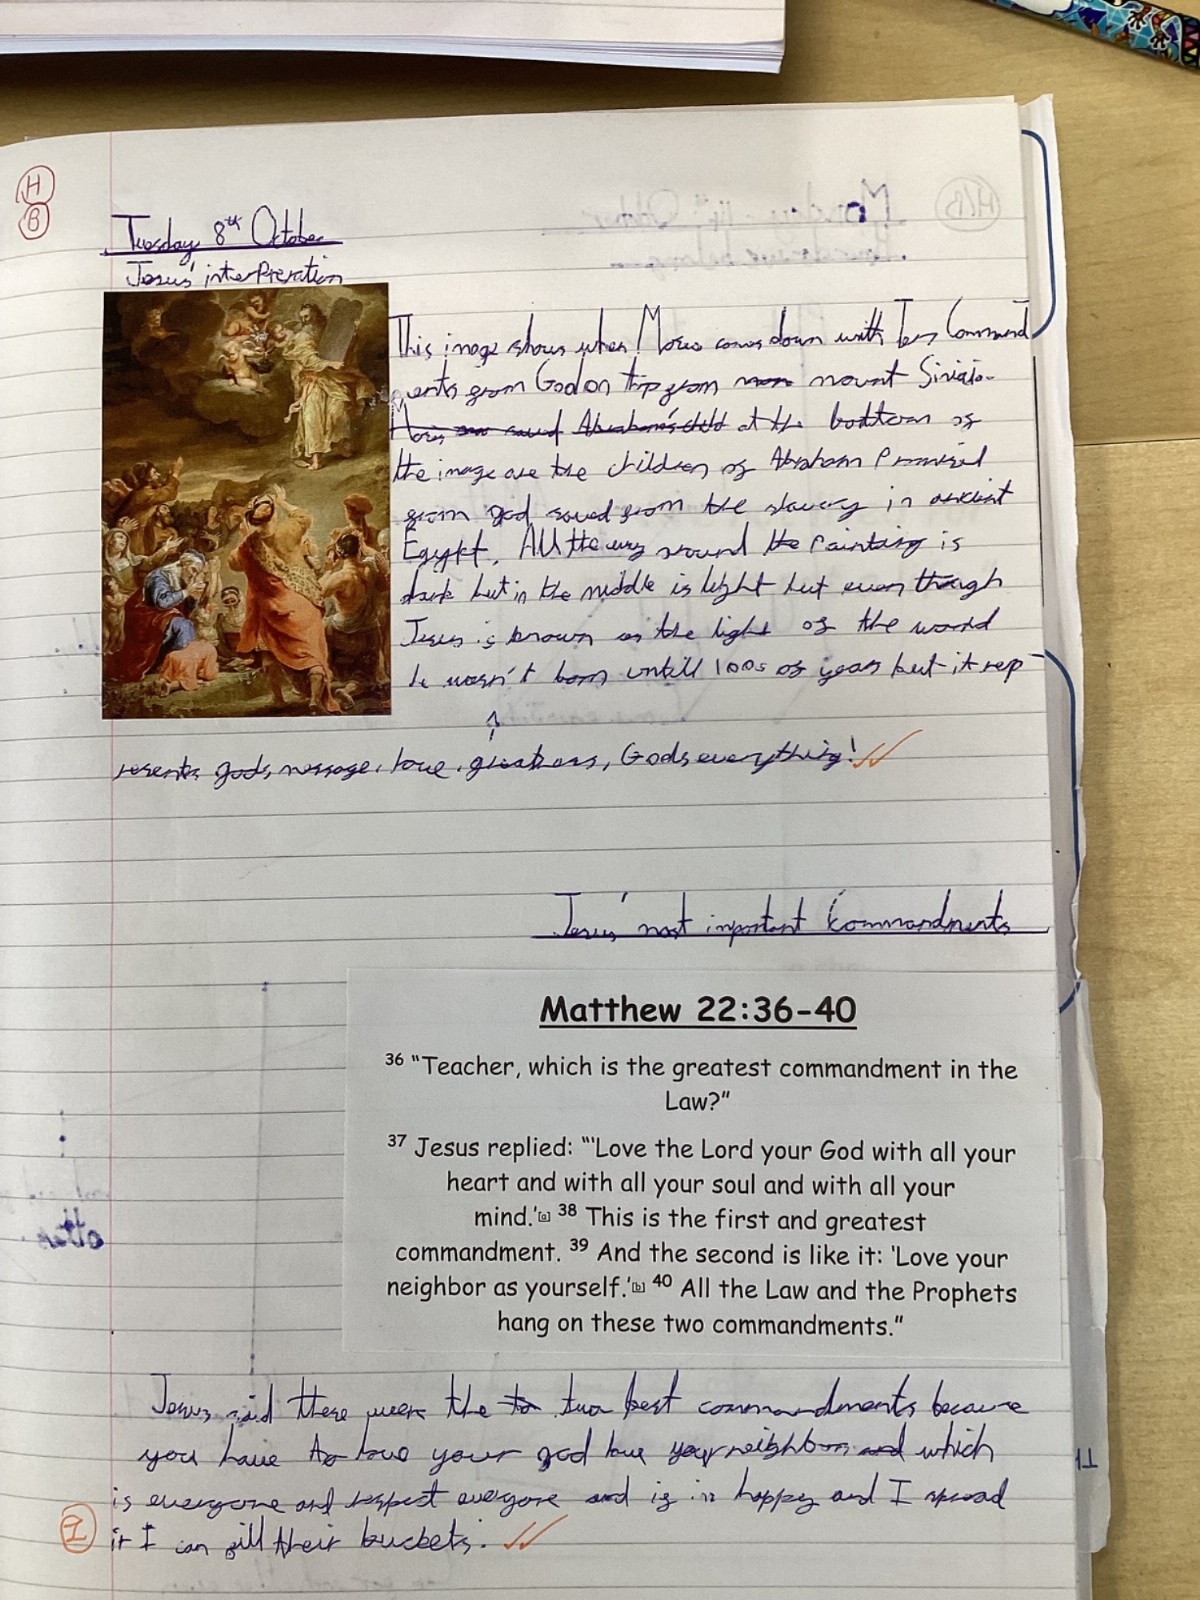 H
B
Tuesday 8th October
Jesus' interpretation
This image shows when Moses comes down with Ten Command
ments from God on trip from mount
at the bottom of
the image are the children of Abraham Promised
from god saved from the slavery in ancient
Egypt. All the way around the painting is
dark but in the middle is light but even though
Jesus is known as the light of the world
he wasn't born untill 100s of years but it rep
resents gods message, love, Gods everything!
Jesus' most important commandments
Matthew 22:36-40
36 "Teacher, which is the greatest commandment in the
Law?"
37 Jesus replied: "'Love the Lord your God with all your
heart and with all your soul and with all your
mind.'[a] 38 This is the first and greatest
commandment. 39 And the second is like it: 'Love your
neighbor as yourself.'[b] 40 All the Law and the Prophets
hang on these two commandments."
Jesus said there were the two best commandments because
you have to love your god love your neighbour which
is everyone and respect everyone and is happy and I spread
it I can fill their buckets.